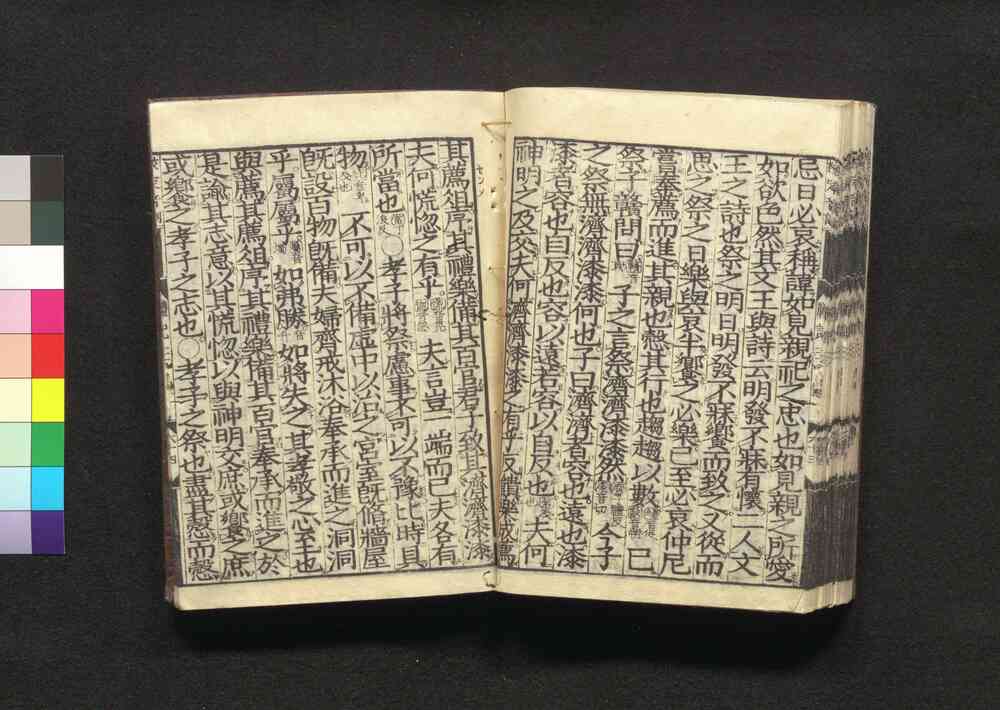 忌日必哀稱諱如見親祀之忠也如見親之所愛
如欲色然其文王與詩云明發不寐有懷二人文
王之詩也祭之明日明發不寐饗而致之又從而
思之祭之日樂與哀半饗之必樂已至必哀仲尼
嘗奉薦而進其親也愨其行也趨趨以數已
祭子贛問曰子之言祭濟濟漆漆然今子
之祭無濟濟漆漆何也子曰濟濟者容也遠也漆
漆者容也自反也容以遠若容以自反也夫何
神明之及交夫何濟濟漆漆之有乎反饋樂成薦
其薦俎序其禮樂備其百官君子致其濟濟漆漆
夫何慌惚之有乎夫言豈一端而已夫各有
所當也○孝子將祭慮事不可以不豫比時具
物不可以不備虛中以治之宮室既脩牆屋
既設百物既備夫婦齊戒沐浴奉承而進之洞洞
乎屬屬乎如弗勝如將失之其孝敬之心至也
與薦其薦俎序其禮樂備其百官奉承而進之於
是諭其志意以其慌惚以與神明交庶或饗之庶
或饗之孝子之志也○孝子之祭也盡其愨而愨